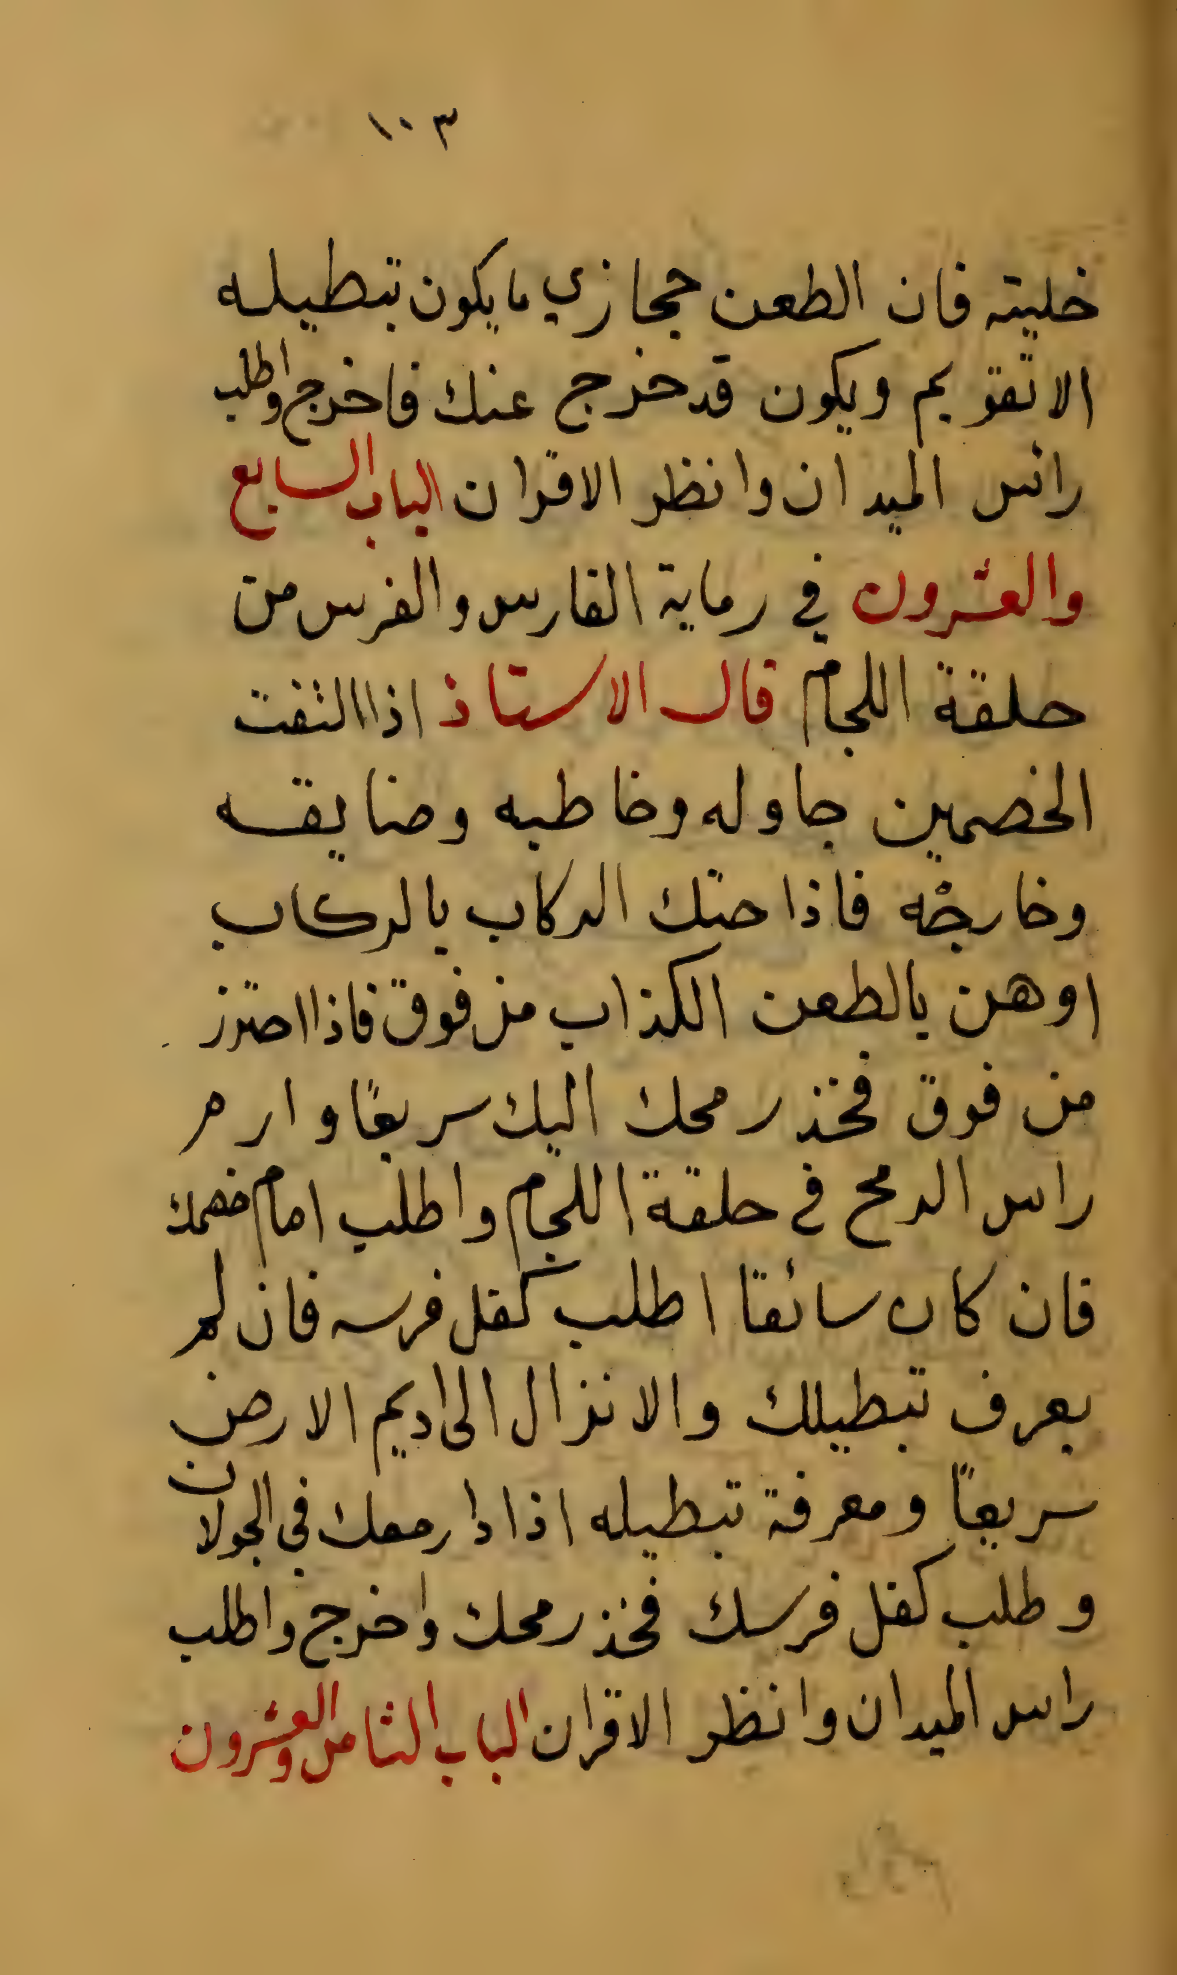 ١٠٣
خليته فان الطعن حجازي ما يكون تبطيله
الا تقويم ويكون قد خرج عنك فاخرج واطلب
راس الميدان وانظر الاقران الباب السابع
والعشرون في رماية الفارس والفرس من
حلقة اللجام قال الاستاذ اذا التفت
الخصمين جاوله وخاطبه وضايقه
وخارجه فاذا حتك الركاب بالركاب
اوهن بالطعن الكذاب من فوق فاذا احترز
من فوق فخذ رمحك اليك سريعًا وارم
راس الرمح في حلقة اللجام واطلب امام خصمك
فان كان سائقا اطلب كفل فرسه فان لم
يعرف تبطيلك والا نزال الى اديم الارض
سريعًا ومعرفة تبطيله اذا دار معك في الجولان
وطلب كفل فرسك فخذ رمحك واخرج واطلب
راس الميدان وانظر الاقران الباب الثامن والعشرون